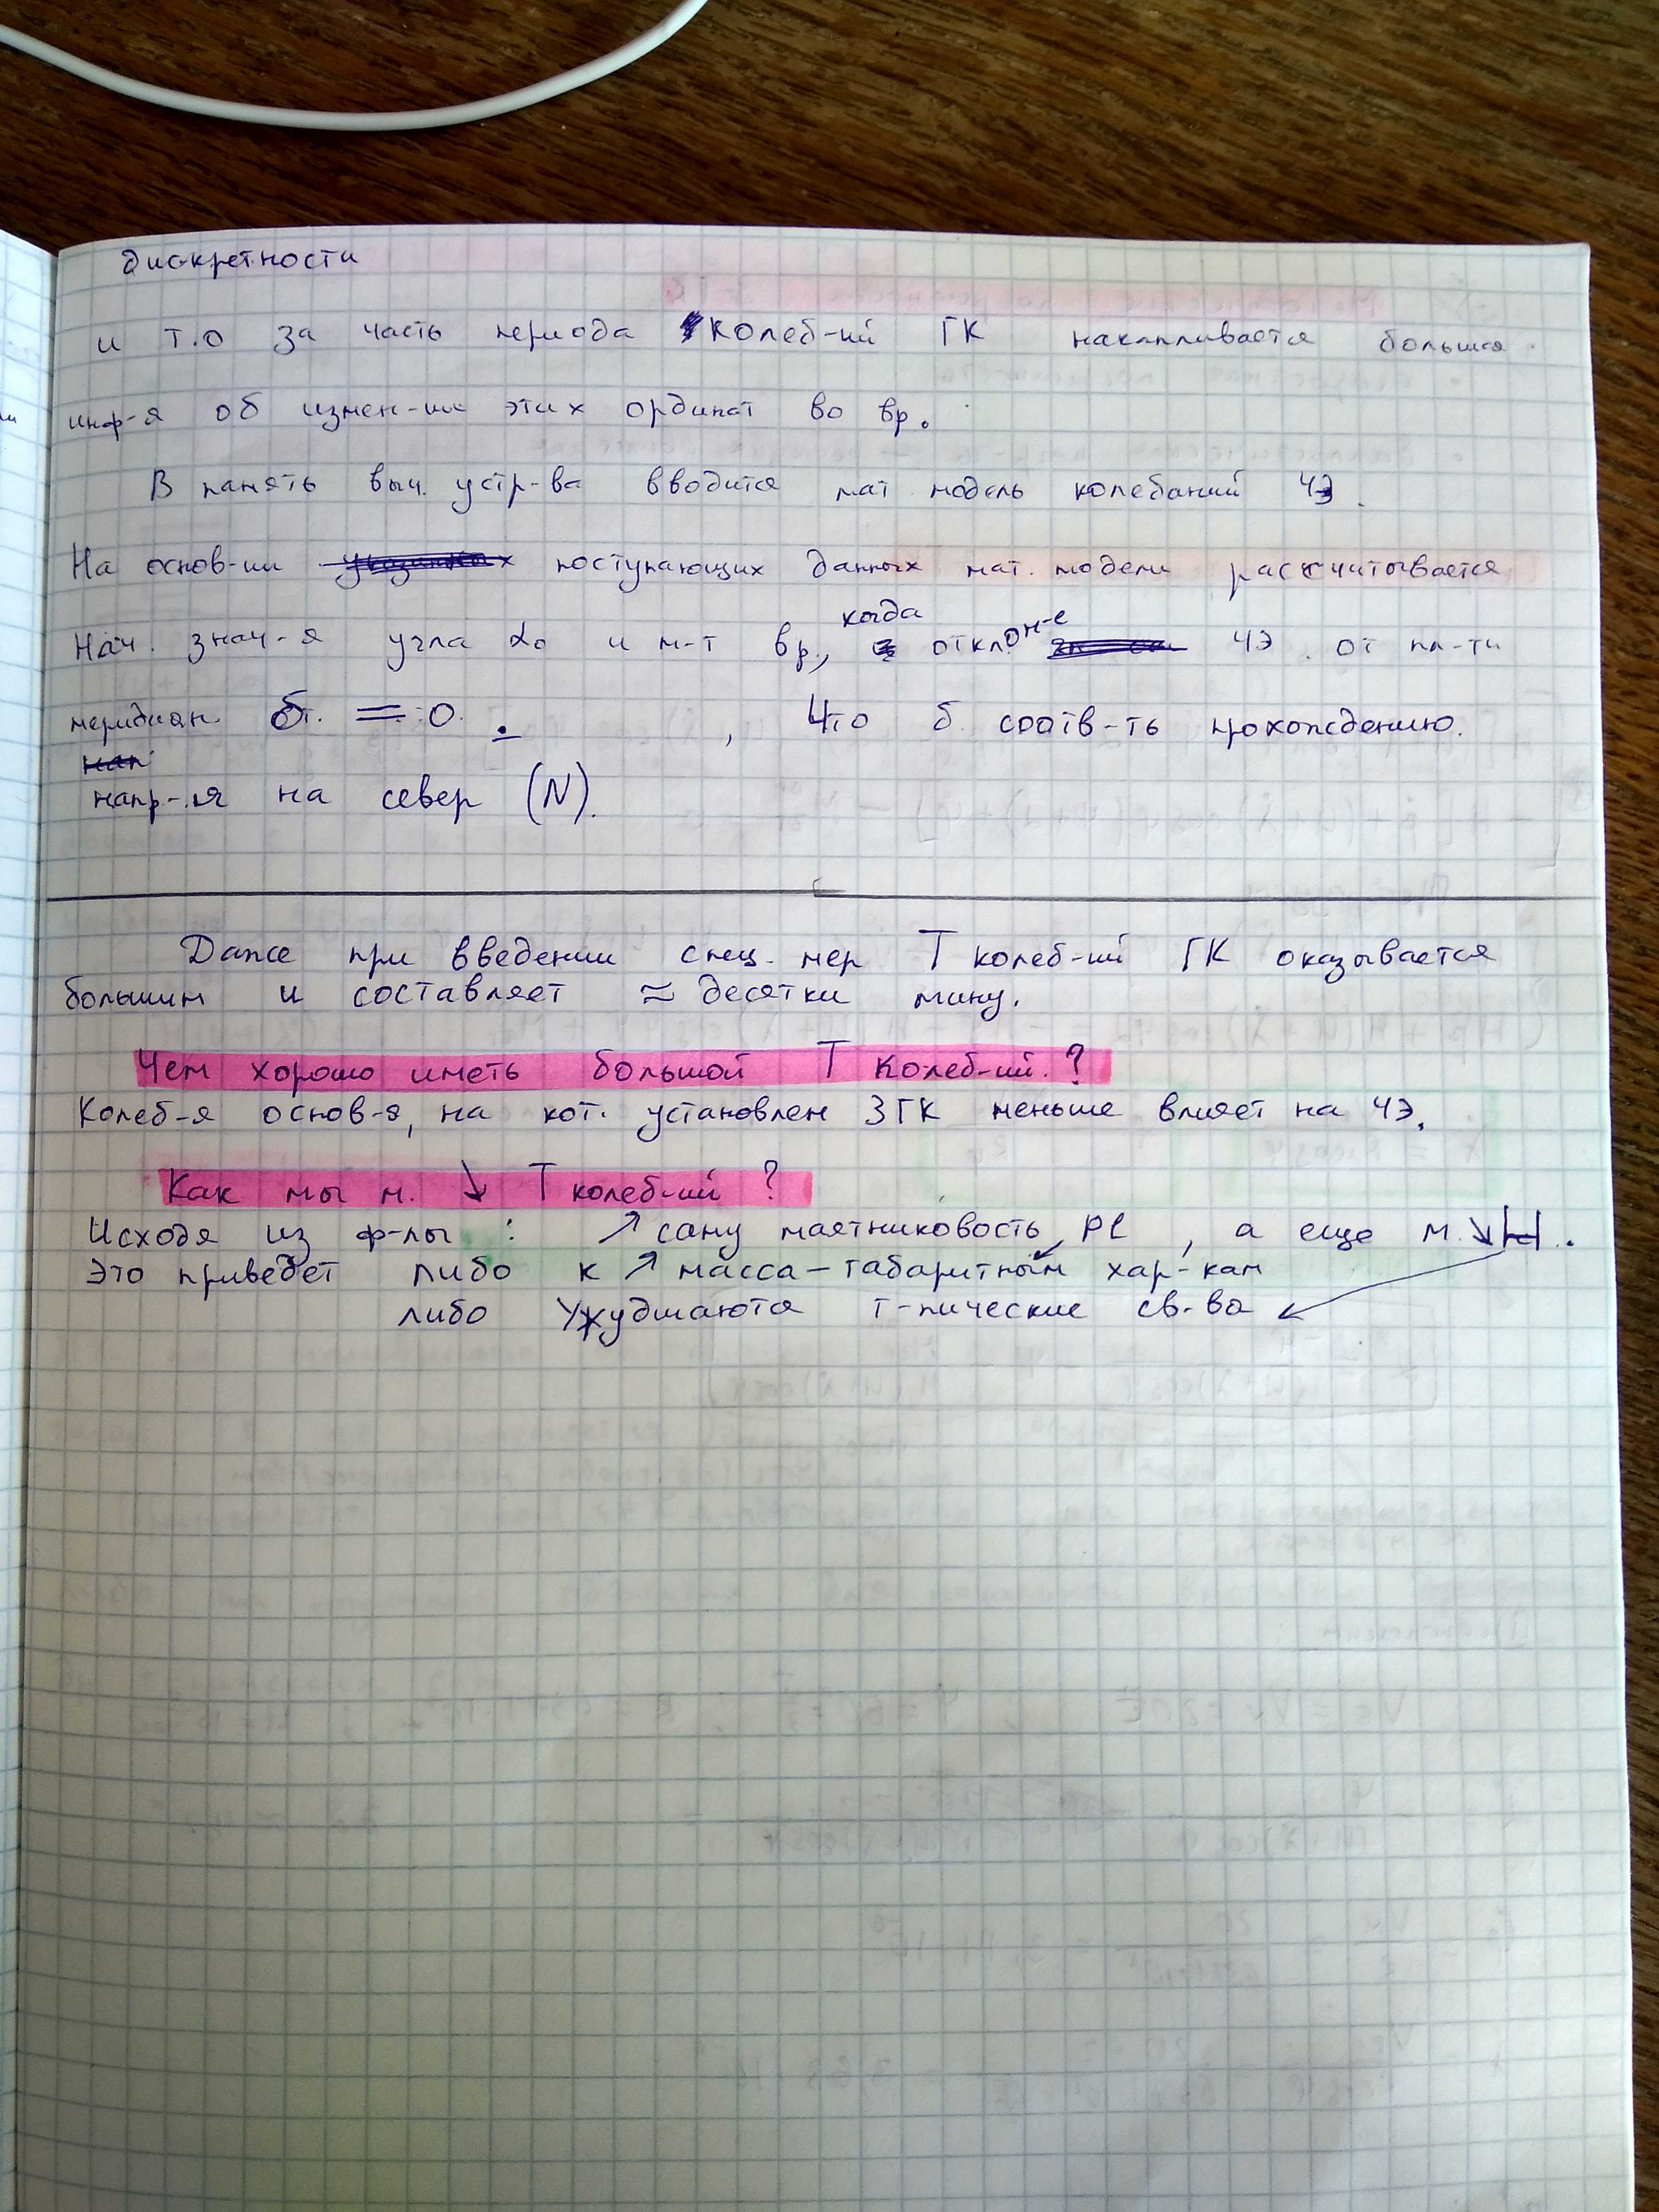 дискретности
и т.о за часть периода колеб-ий ГК накапливается больша
инф-я об измен-ии этих ординат во вр.
В память выч. устр-ва вводится мат модель колебаний ЧЭ.
На основ-ии поступающих данных мат. модели рассчитывается
когда
Нач. знач-я угла α₀ и м-т вр., отклон-е ЧЭ. от пл-ти
меридиан. б. = 0. , что б. соотв-ть прохождению.
напр-я на север (N).
Даже при введении спец. мер T колеб-ий ГК оказывается
большим и составляет ≈ десятки мину.
Чем хорошо иметь большой T колеб-ий.?
Колеб-я основ-я, на кот. установлен ЗГК меньше влияет на ЧЭ.
Как мы м. ↓ T колеб-ий?
Исходя из ф-лы : ↗ саму маятниковость, Pl , а еще м. ↓ H.
Это приведет либо к ↗ масса-габаритным хар-кам
либо Ухудшаются т-пические св-ва